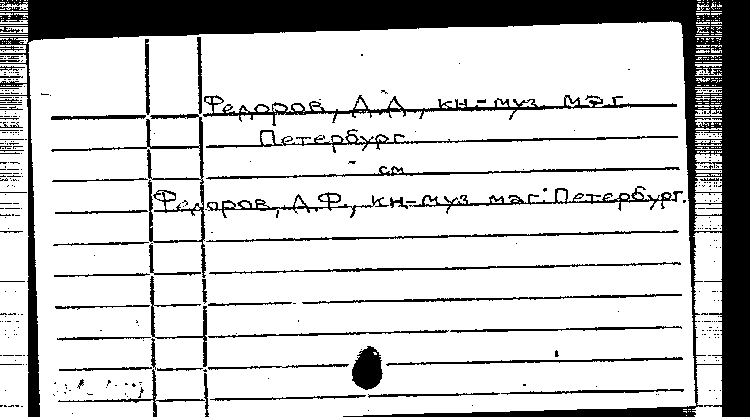 Федоров, Д.Д., кн-муз маг
Петербург
см
Федоров, Д.Ф., кн-муз маг. Петербург.